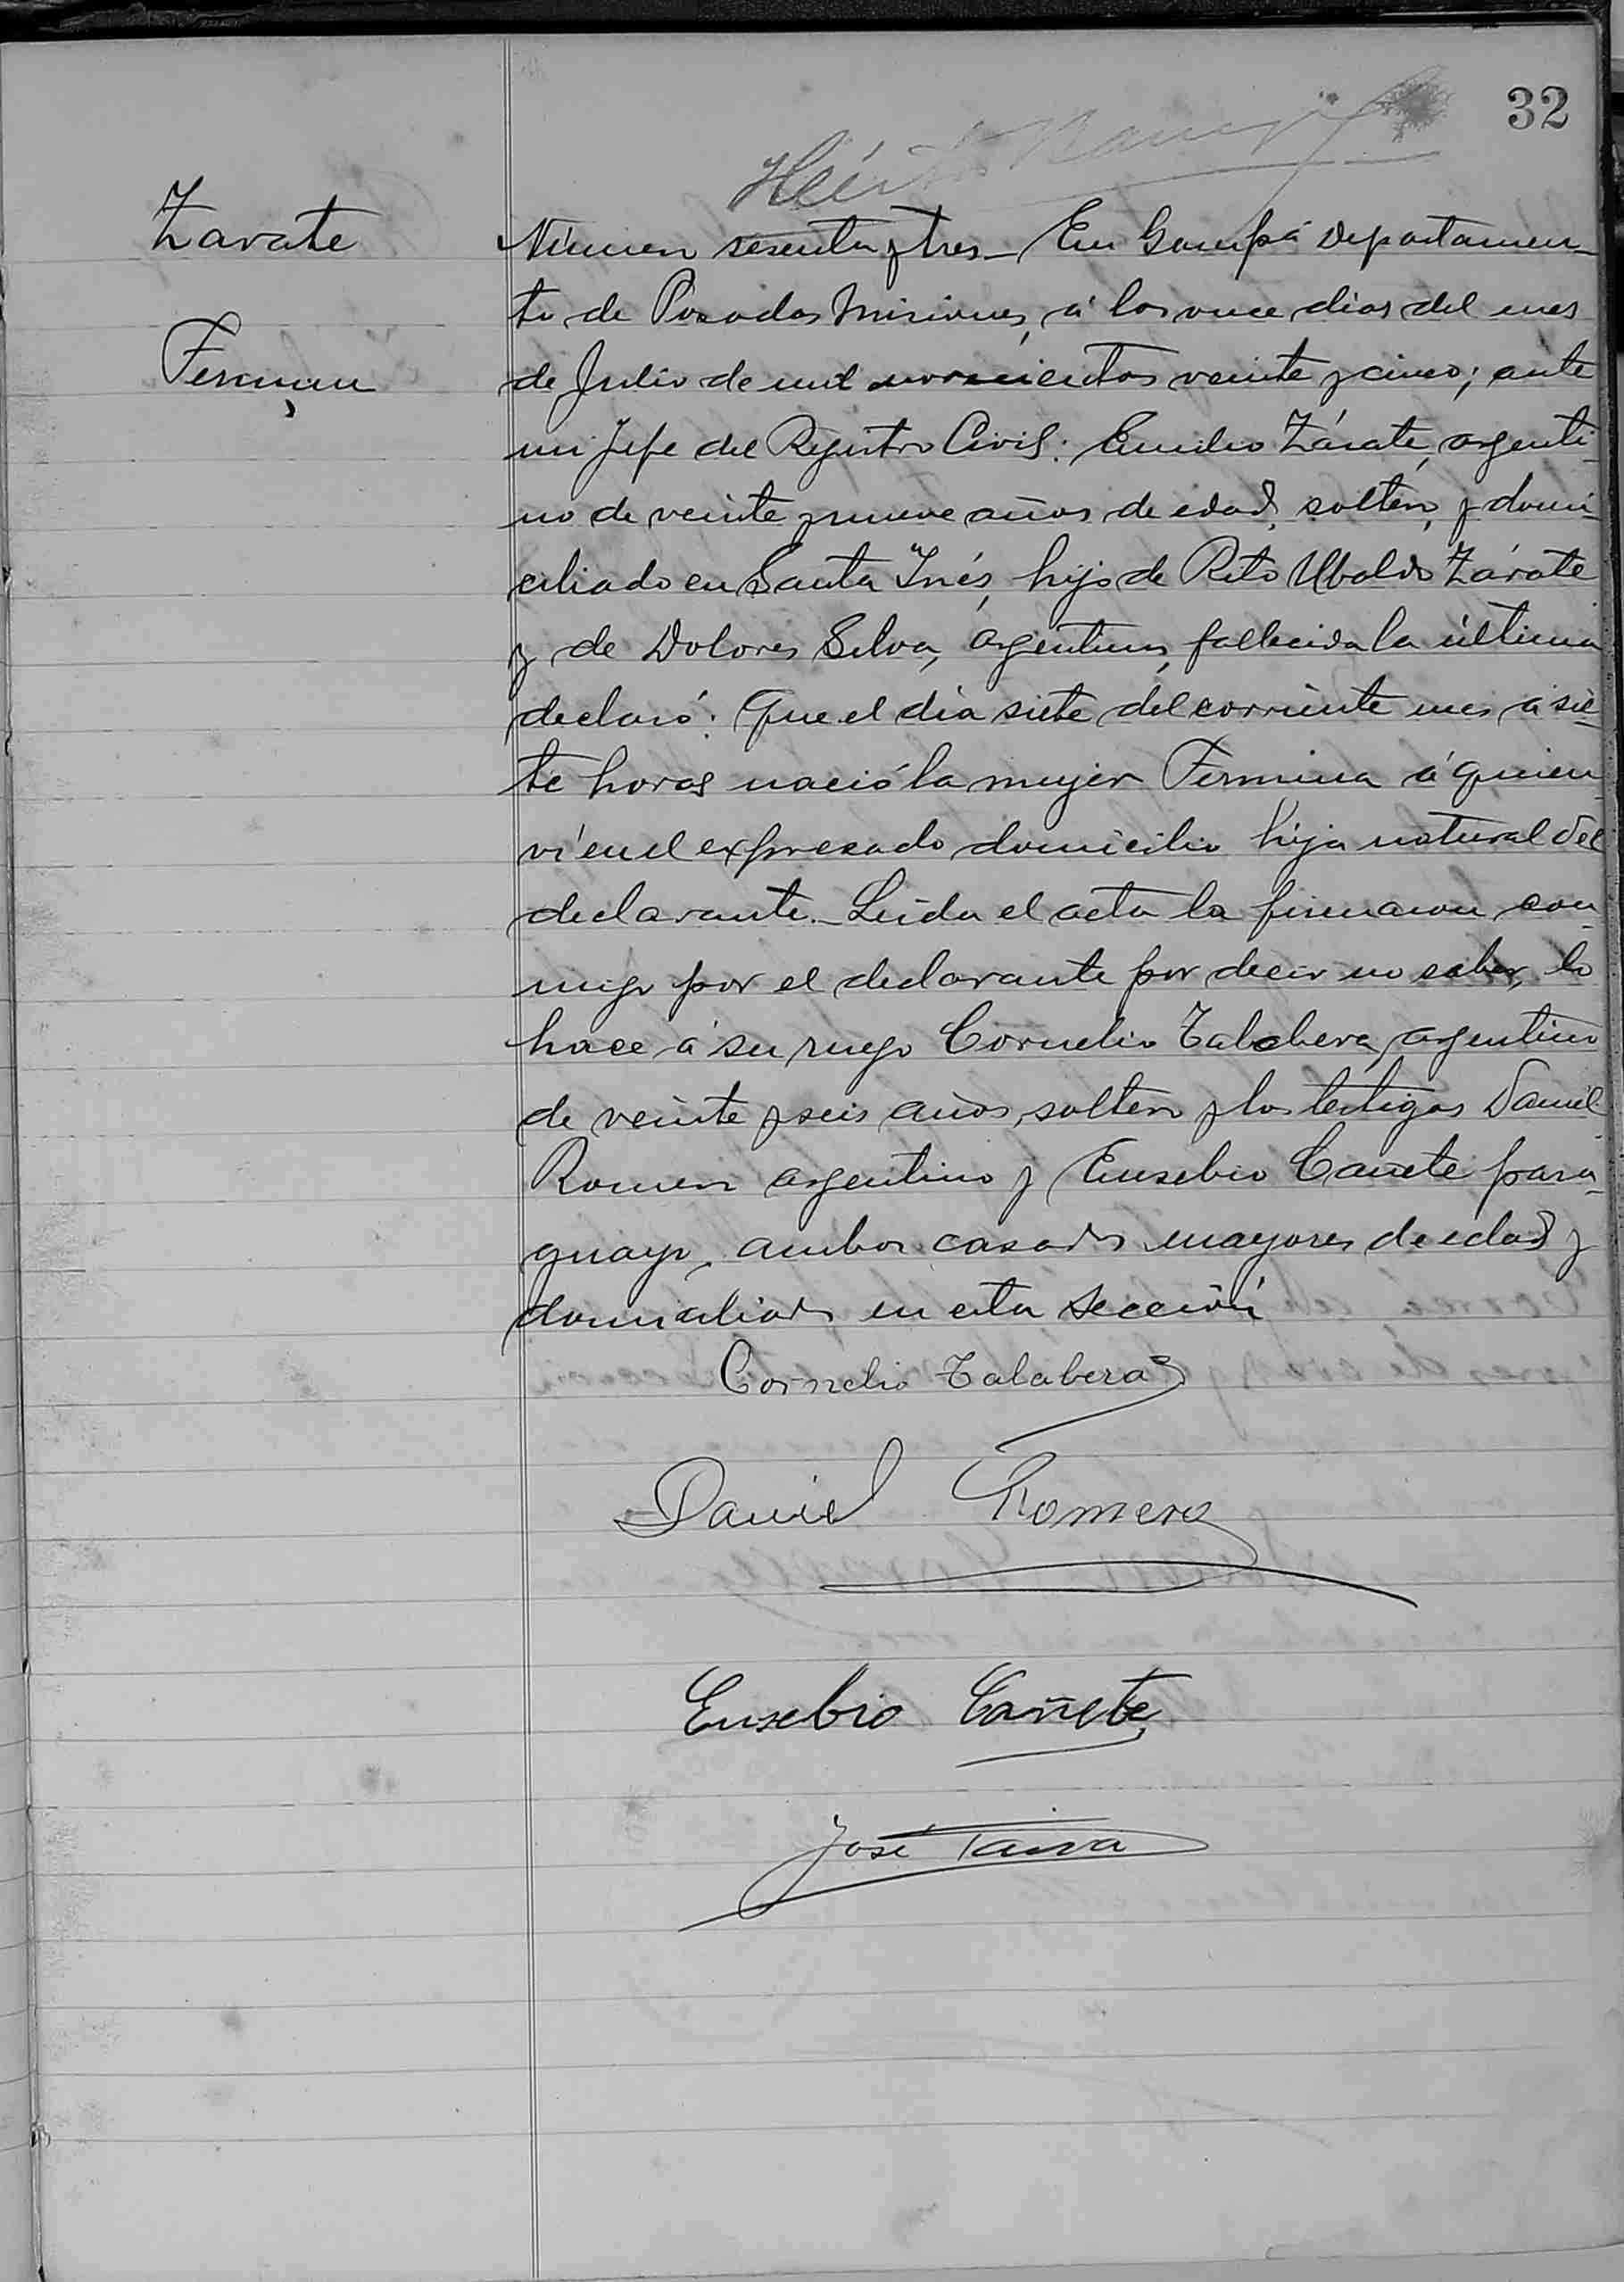 32
Zarate
Fermina
Número sesenta y tres_ En Garupá Departamen_
to de Posadas Misiones, á los once dias del mes
de Julio de mil novecientos veinte y cinco; ante
mi Jefe del Registro Civil: Emilio Zárate, argenti_
no de veinte y nueve años de edad, soltero, y domi_
ciliado en Santa Inés, hijo de Rito Ubaldo Zárate
y de Dolores Silva, argentinos, fallecida la última
declaró: Que el día siete del corriente mes á sie_
te horas nació la mujer Fermina á quien
ví en el expresado domicilio hija natural del
declarante._ Leida el acta la firmaron con_
migo por el declarante por decir no saber, lo
hace á su ruego Cornelio Talabera, argentino
de veinte y seis años, soltero y los testigos Daniel
Romero argentino y Eusebio Cañete para_
guayo, ambos casados mayores de edad y
domiciliados en esta Sección
Cornelio Talabera
Daniel Romero
Eusebio Cañete
José